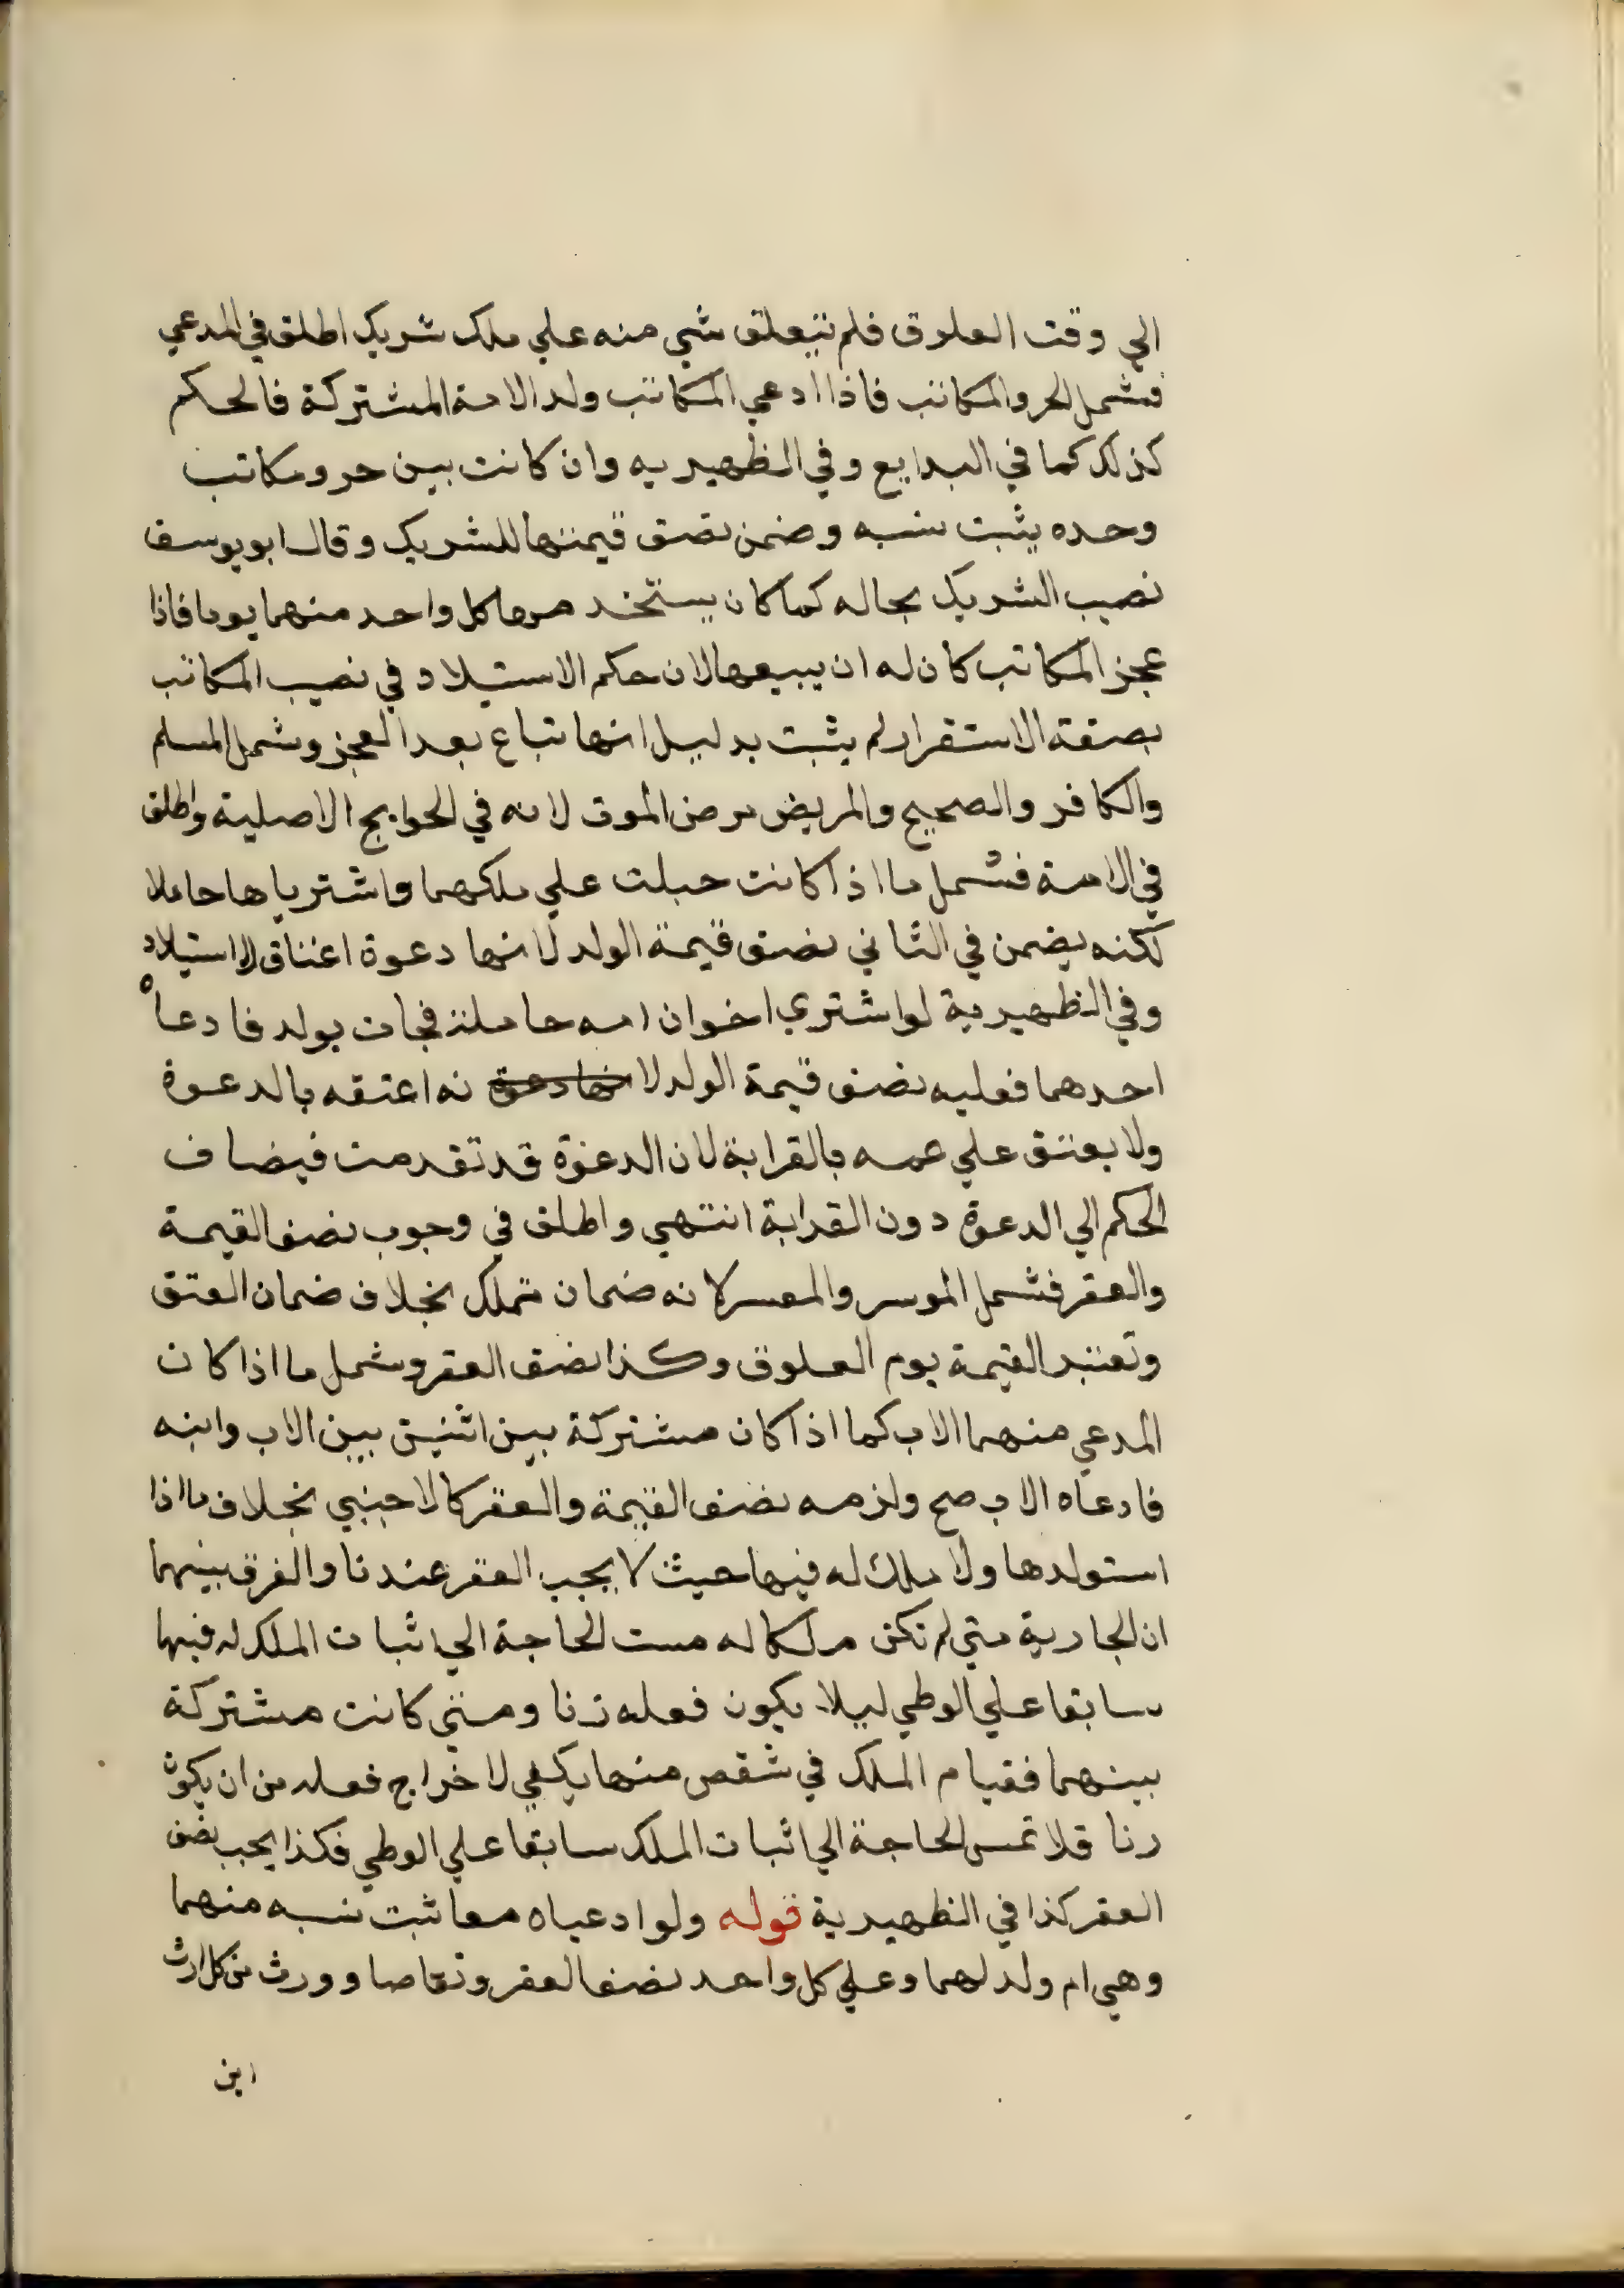 الي وقت العلوق فلم يتعلق شي منه علي ملك شريك اطلق في المدعي
فشمل الحر والمكاتب فاذا ادعي المكاتب ولد الامة المشتركة فالحكم
كذلك كما في البدايع وفي الظهيريه وان كانت بين حر ومكاتب
وحده يثبت نسبه وضمن نصف قيمتها للشريك وقال ابو يوسف
نصيب الشريك بحاله كما كان يستخدمها كل واحد منهما يوما فاذا
عجز المكاتب كان له ان يبيعها لان حكم الاستيلاد في نصيب المكاتب
بصفة الاستقرار لم يثبت بدليل انها تباع بعد العجز وشمل المسلم
والكافر والصحيح والمريض مرض الموت لانه في الحوايج الاصلية واطلق
في الامة فشمل ما اذا كانت حبلت علي ملكهما واشترياها حاملا
لكنه يضمن في الثاني نصف قيمة الولد لانها دعوة اعتاق لا استيلاد
وفي الظهيرية لو اشتري اخوان امه حاملة فجات بولد فادعاه
احدهما فعليه نصف قيمة الولد لا نها دعوة نه اعتقه بالدعوة
ولا يعتق علي عمه بالقرابة لان الدعوة قد تقدمت فيضاف
الحكم الي الدعوة دون القرابة انتهي واطلق في وجوب نصف القيمة
والعقر فشمل الموسر والمعسر لانه ضمان تملك بخلاف ضمان العتق
وتعتبر القيمة يوم العلوق وكذا نصف العقر وشمل ما اذا كان
المدعي منهما الاب كما اذا كان مشتركة بين اثنين بين الاب وابنه
فادعاه الاب صح ولزمه نصف القيمة والعقر كالاجنبي بخلاف ما اذا
استولدها ولا ملك له فيها حيث لا يجب العقر عندنا والفرق بينهما
ان الجارية متي لم تكن ملكا له مست الحاجة الي اثبات الملك له فيها
سابقا علي الوطي ليلا يكون فعله زنا ومتي كانت مشتركة
بينهما فقيام الملك في شقص منها يكفي لاخراج فعله من ان يكون
زنا فلا تمس الحاجة الي اثبات الملك سابقا علي الوطي فكذا يجب نصف
العقر كذا في الظهيرية قوله ولو ادعياه معا ثبت نسبه منهما
وهي ام ولد لهما وعلي كل واحد نصف العقر وتقاصا وورث من كل ارث
ابن